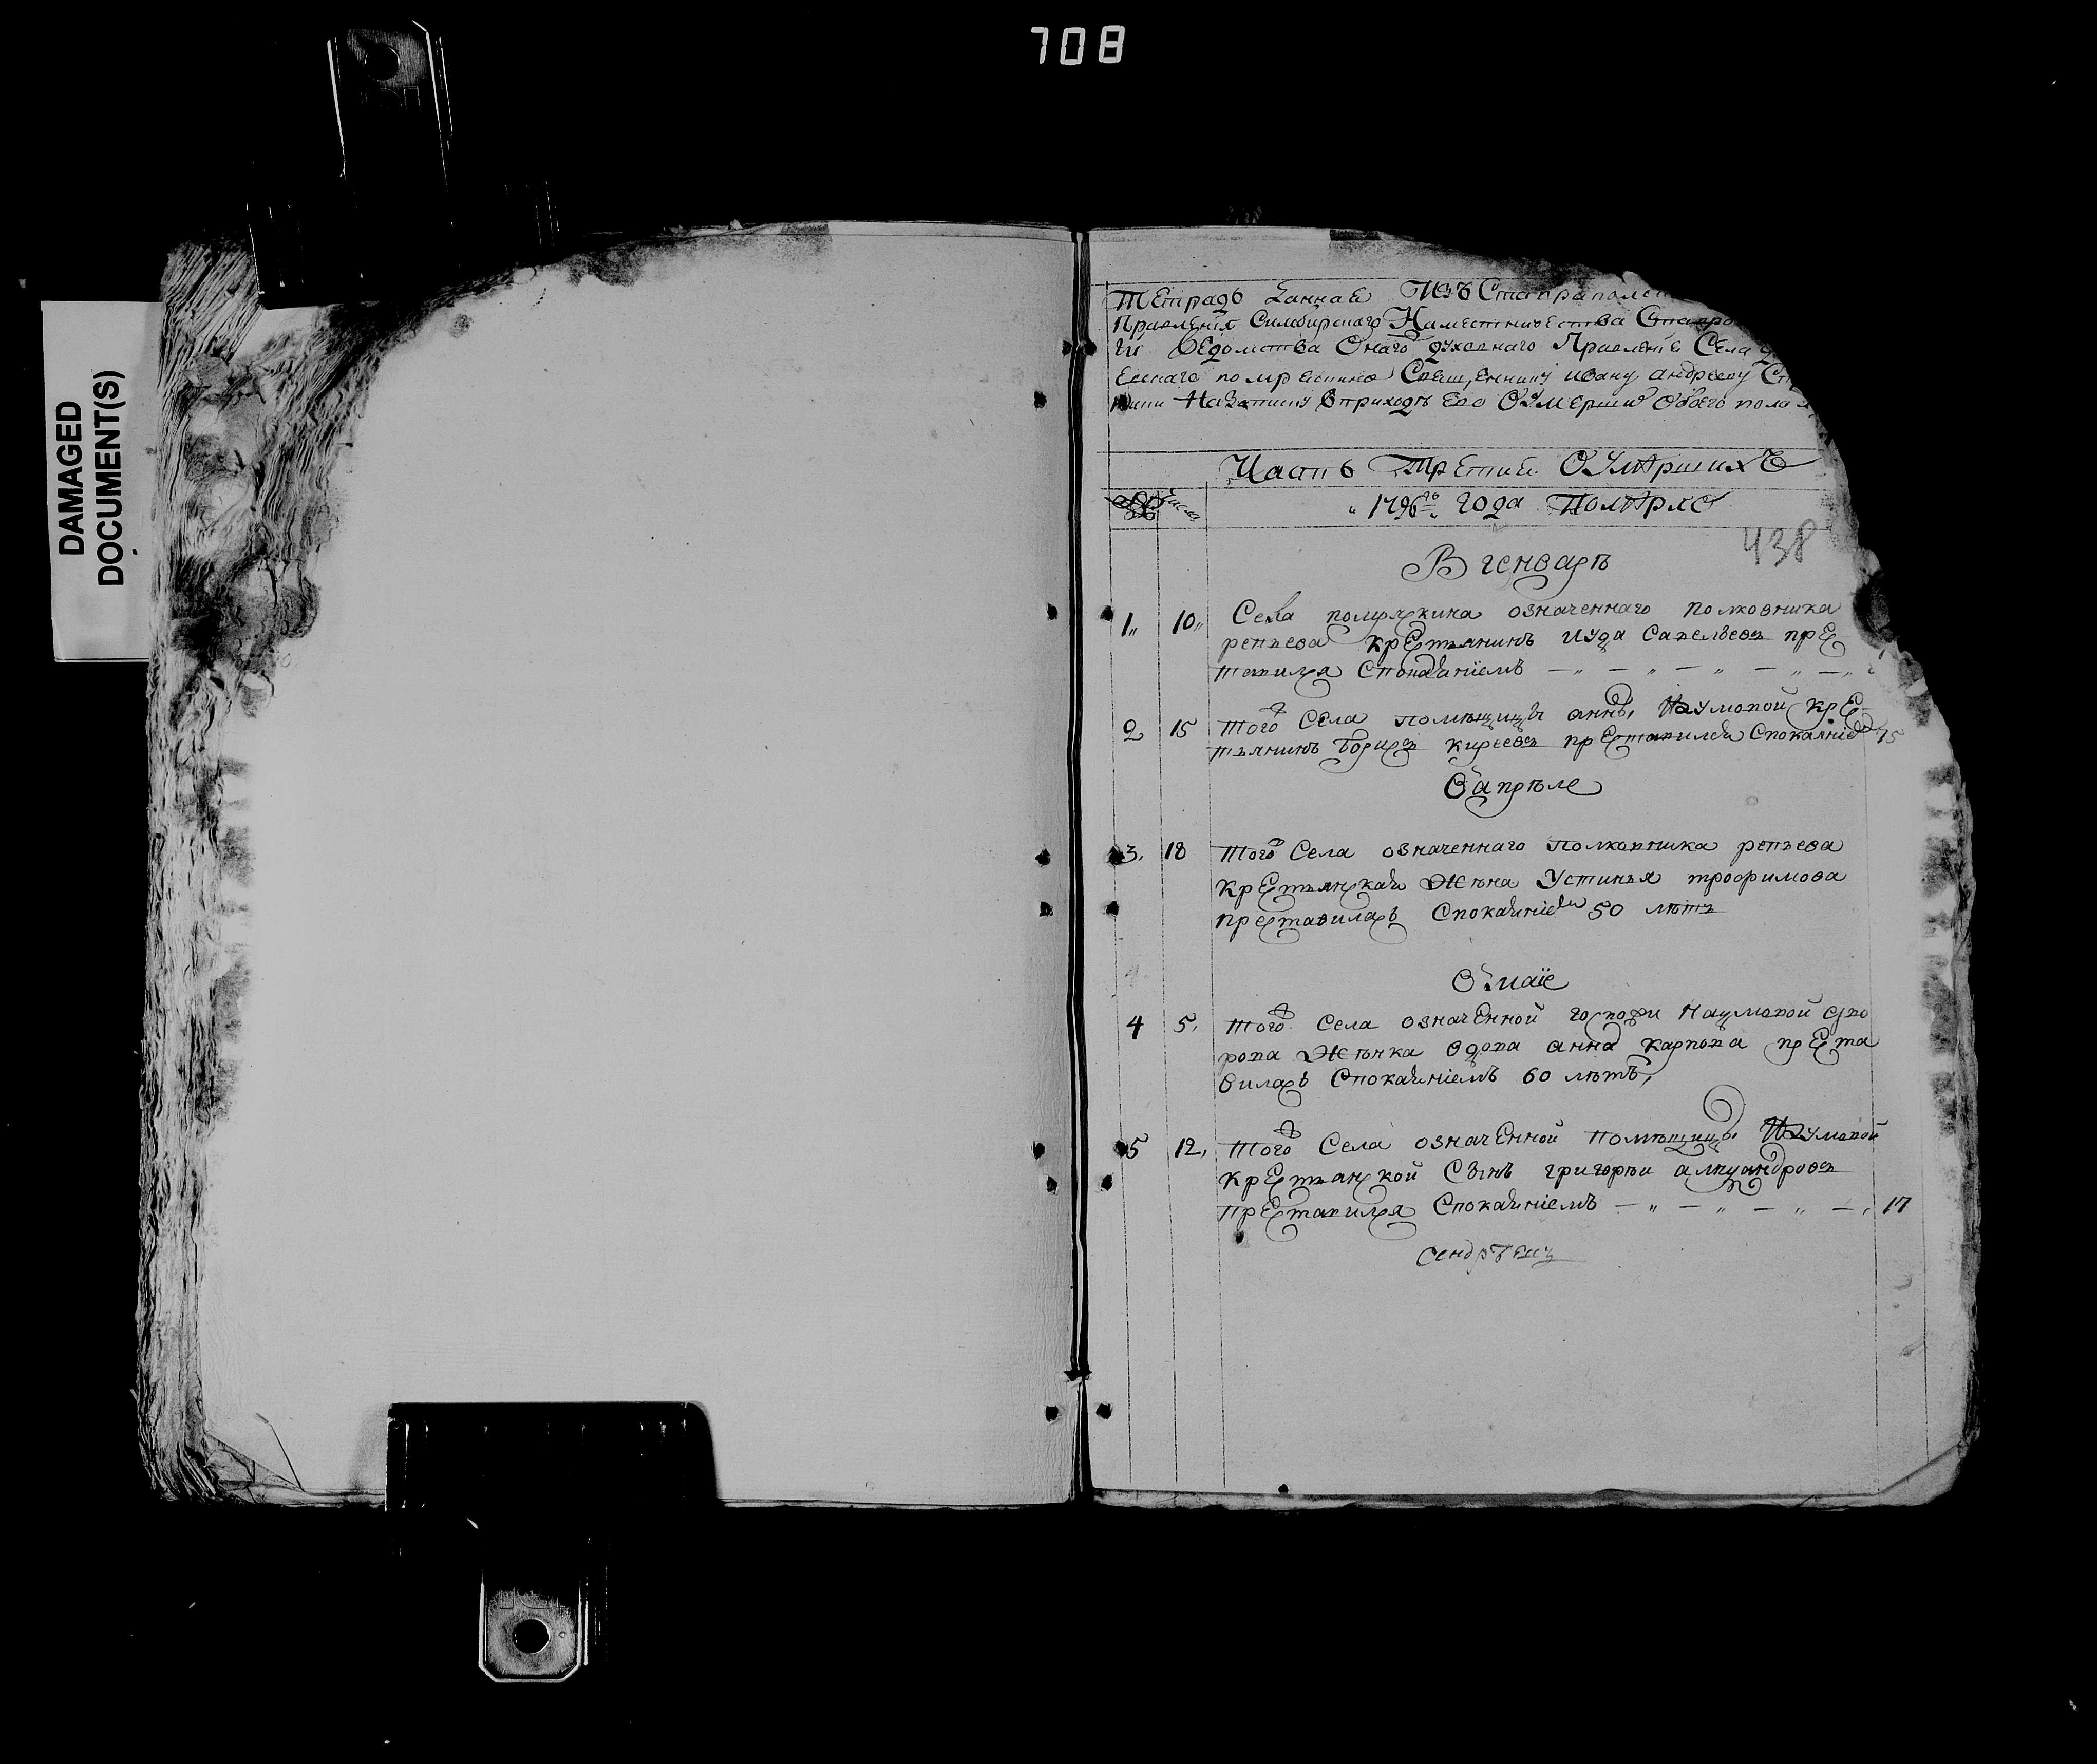 708
DAMAGED
DOCUMENT(S)
Тетрадь данная Изъ
Правленія Симбирскаго Наместничества
Ведомства Онаго духовнаго Правленіе Села
Священнику ивану андрееву
На записку в приходѣ Его Обоего пола
Часть Третия О Умѣршихъ
Число
1796го Года Помѣрло
438
В генварѣ
1 10 Села помряскина означеннаго полковника
репьева крестьянинъ иуда савельевъ пре
ставился Спокаяніемъ
2 15 того Села помѣщицы анны Наумовой кре
стьянинъ борисъ киреевъ преставился Спокаяніем 75
В апрѣле
3. 18 того Села означеннаго полковника репьева
крестьянская жена Устинья трофимова
преставилась Спокаяніем 50 лѣтъ
В маіе
4 5. того Села означенной госпожи Наумовой дво
рова женка вдова анна карпова преста
вилась Спокаяніемъ 60 лѣтъ,
5 12, того Села означенной помѣщицы Наумовой
крестьянской Сынъ григореи
преставился Спокаяніемъ 17